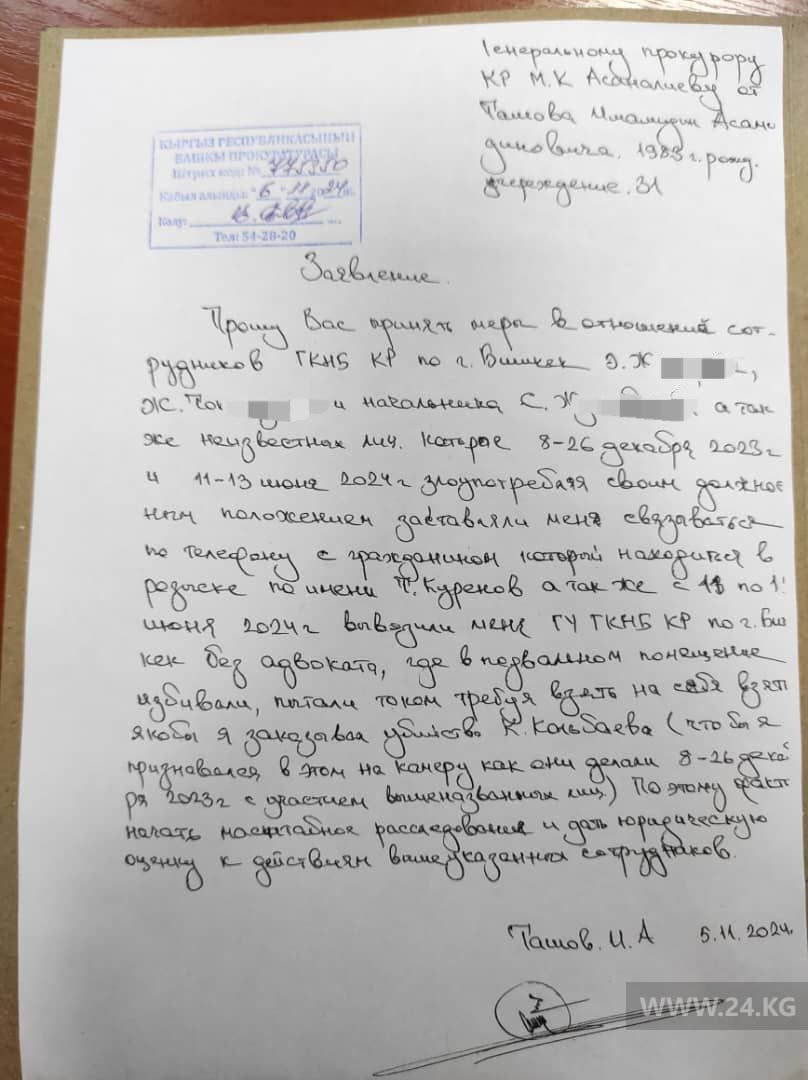 Генеральному прокурору
КР М.К Асаналиеву от
Ташова Имамидин Асами
диновича. 1983 г. рожд.
учереждение. 31
КЫРГЫЗ РЕСПУБЛИКАСЫНЫН
БАШКЫ ПРОКУРАТУРАСЫ
Штрих код: № 775350
Кабыл алынды: "6" 11 2024 ж.
Калу:
Тел: 54-28-20
Заявление.
Прошу Вас принять меры в отношений сот-
рудников ГКНБ КР по г. Бишкек Э. Ж
Ж. и начальника С. Ж а так
же неизвестных лич. которые 8-26 декабря 2023 г
и 11-13 июня 2024 г злоупотребляя своим должнос
ным положением заставляли меня связаваться
по телефону с гражданином который находится в
розыске по имени Куренов а так же с по
июня 2024 г выводили меня ГУ ГКНБ КР по г. Биш
кек без адвоката, где в подвальном помещение
избивали, пытали током требуя взять на себя взять
якобы я заказывал убийство К. Кольбаева (что бы я
признавался в этом на камеру как они делали 8-26 декаб
ря 2023 г с участием вышеназванных лиц.) По этому факту
начать масштабное расследования и дать юридическую
оценку к действиям вышеуказанных сотрудников.
Ташов. И. А 5.11.2024.
WWW.24.KG